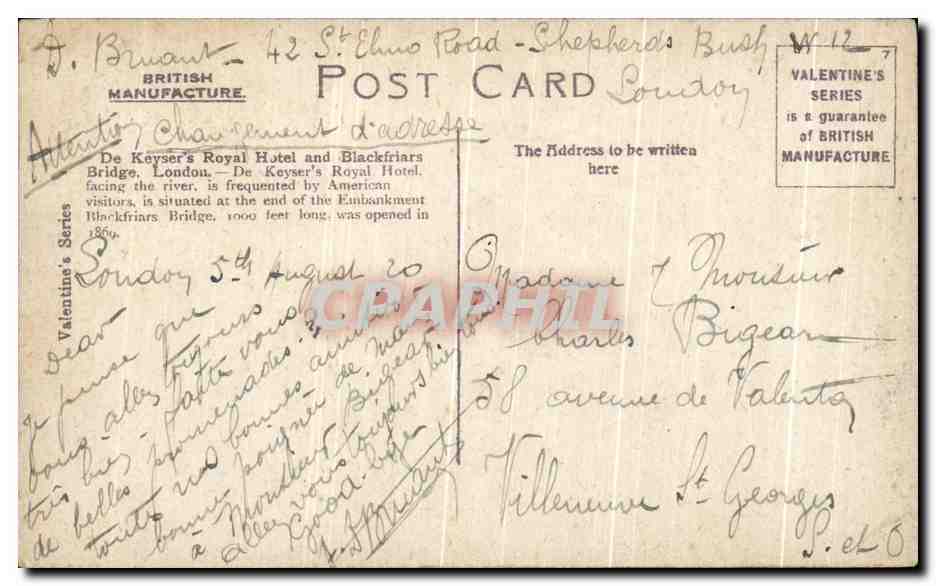 D. Bruant - 42 St Elmo Road - Shepherds Bush W 12
London
BRITISH
MANUFACTURE.
POST CARD
VALENTINE'S
SERIES
is a guarantee
of BRITISH
MANUFACTURE
Attention changement d'adresse
The Address to be written
here
De Keyser's Royal Hotel and Blackfriars
Bridge, London. — De Keyser's Royal Hotel,
facing the river, is frequented by American
visitors, is situated at the end of the Embankment
Blackfriars Bridge, 1000 feet long, was opened in
1869.
Valentine's Series
London 5th August 20
Dear
Je pense que
vous allez toujours
très bien. faites vous
de belles promenades.
toutes nos bonnes amitiés
bonne poignée de main
à Monsieur Bigeard
allez vous toujours bien
Good bye
D. Bruant
Madame & Monsieur
Charles Bigeard
58 avenue de Valenton
Villeneuve St Georges
S. et O
CPAPHIL